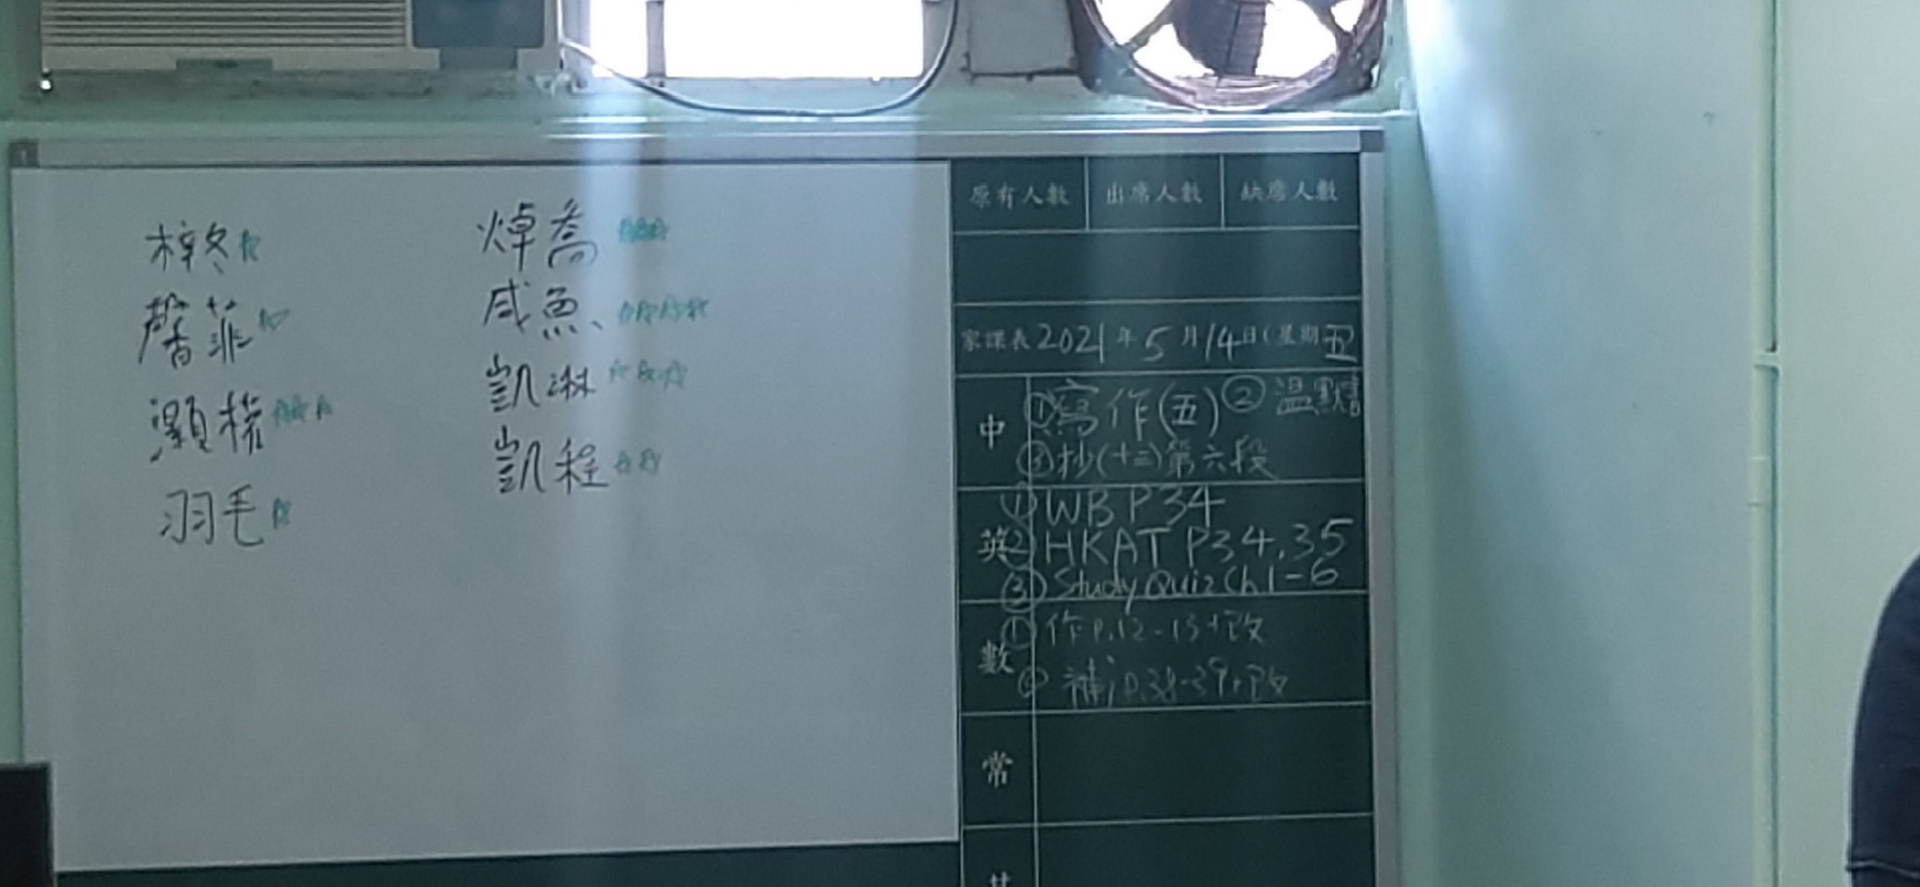 梓冬
馨菲
灝權
羽毛
焯喬
咸魚
凱淋
凱程
原有人數 出席人數 缺席人數
家課表 2021年5月14日(星期五
中 ①寫作(五) ②溫默書
③抄(十二)第六段
英 ①WB P34
②HKAT P34,35
③Study Quiz Ch1-6
數 ①作P.12-13+改
②補P.38-39+改
常